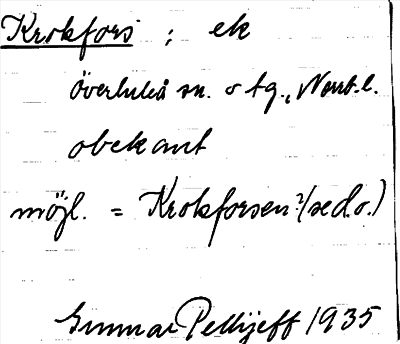 Krokfors ; ek
överluleå sn. o tg., Nbt. l.
obekant
möjl. = Krokforsen? (se d. o.)
Gunnar Pellijeff 1935